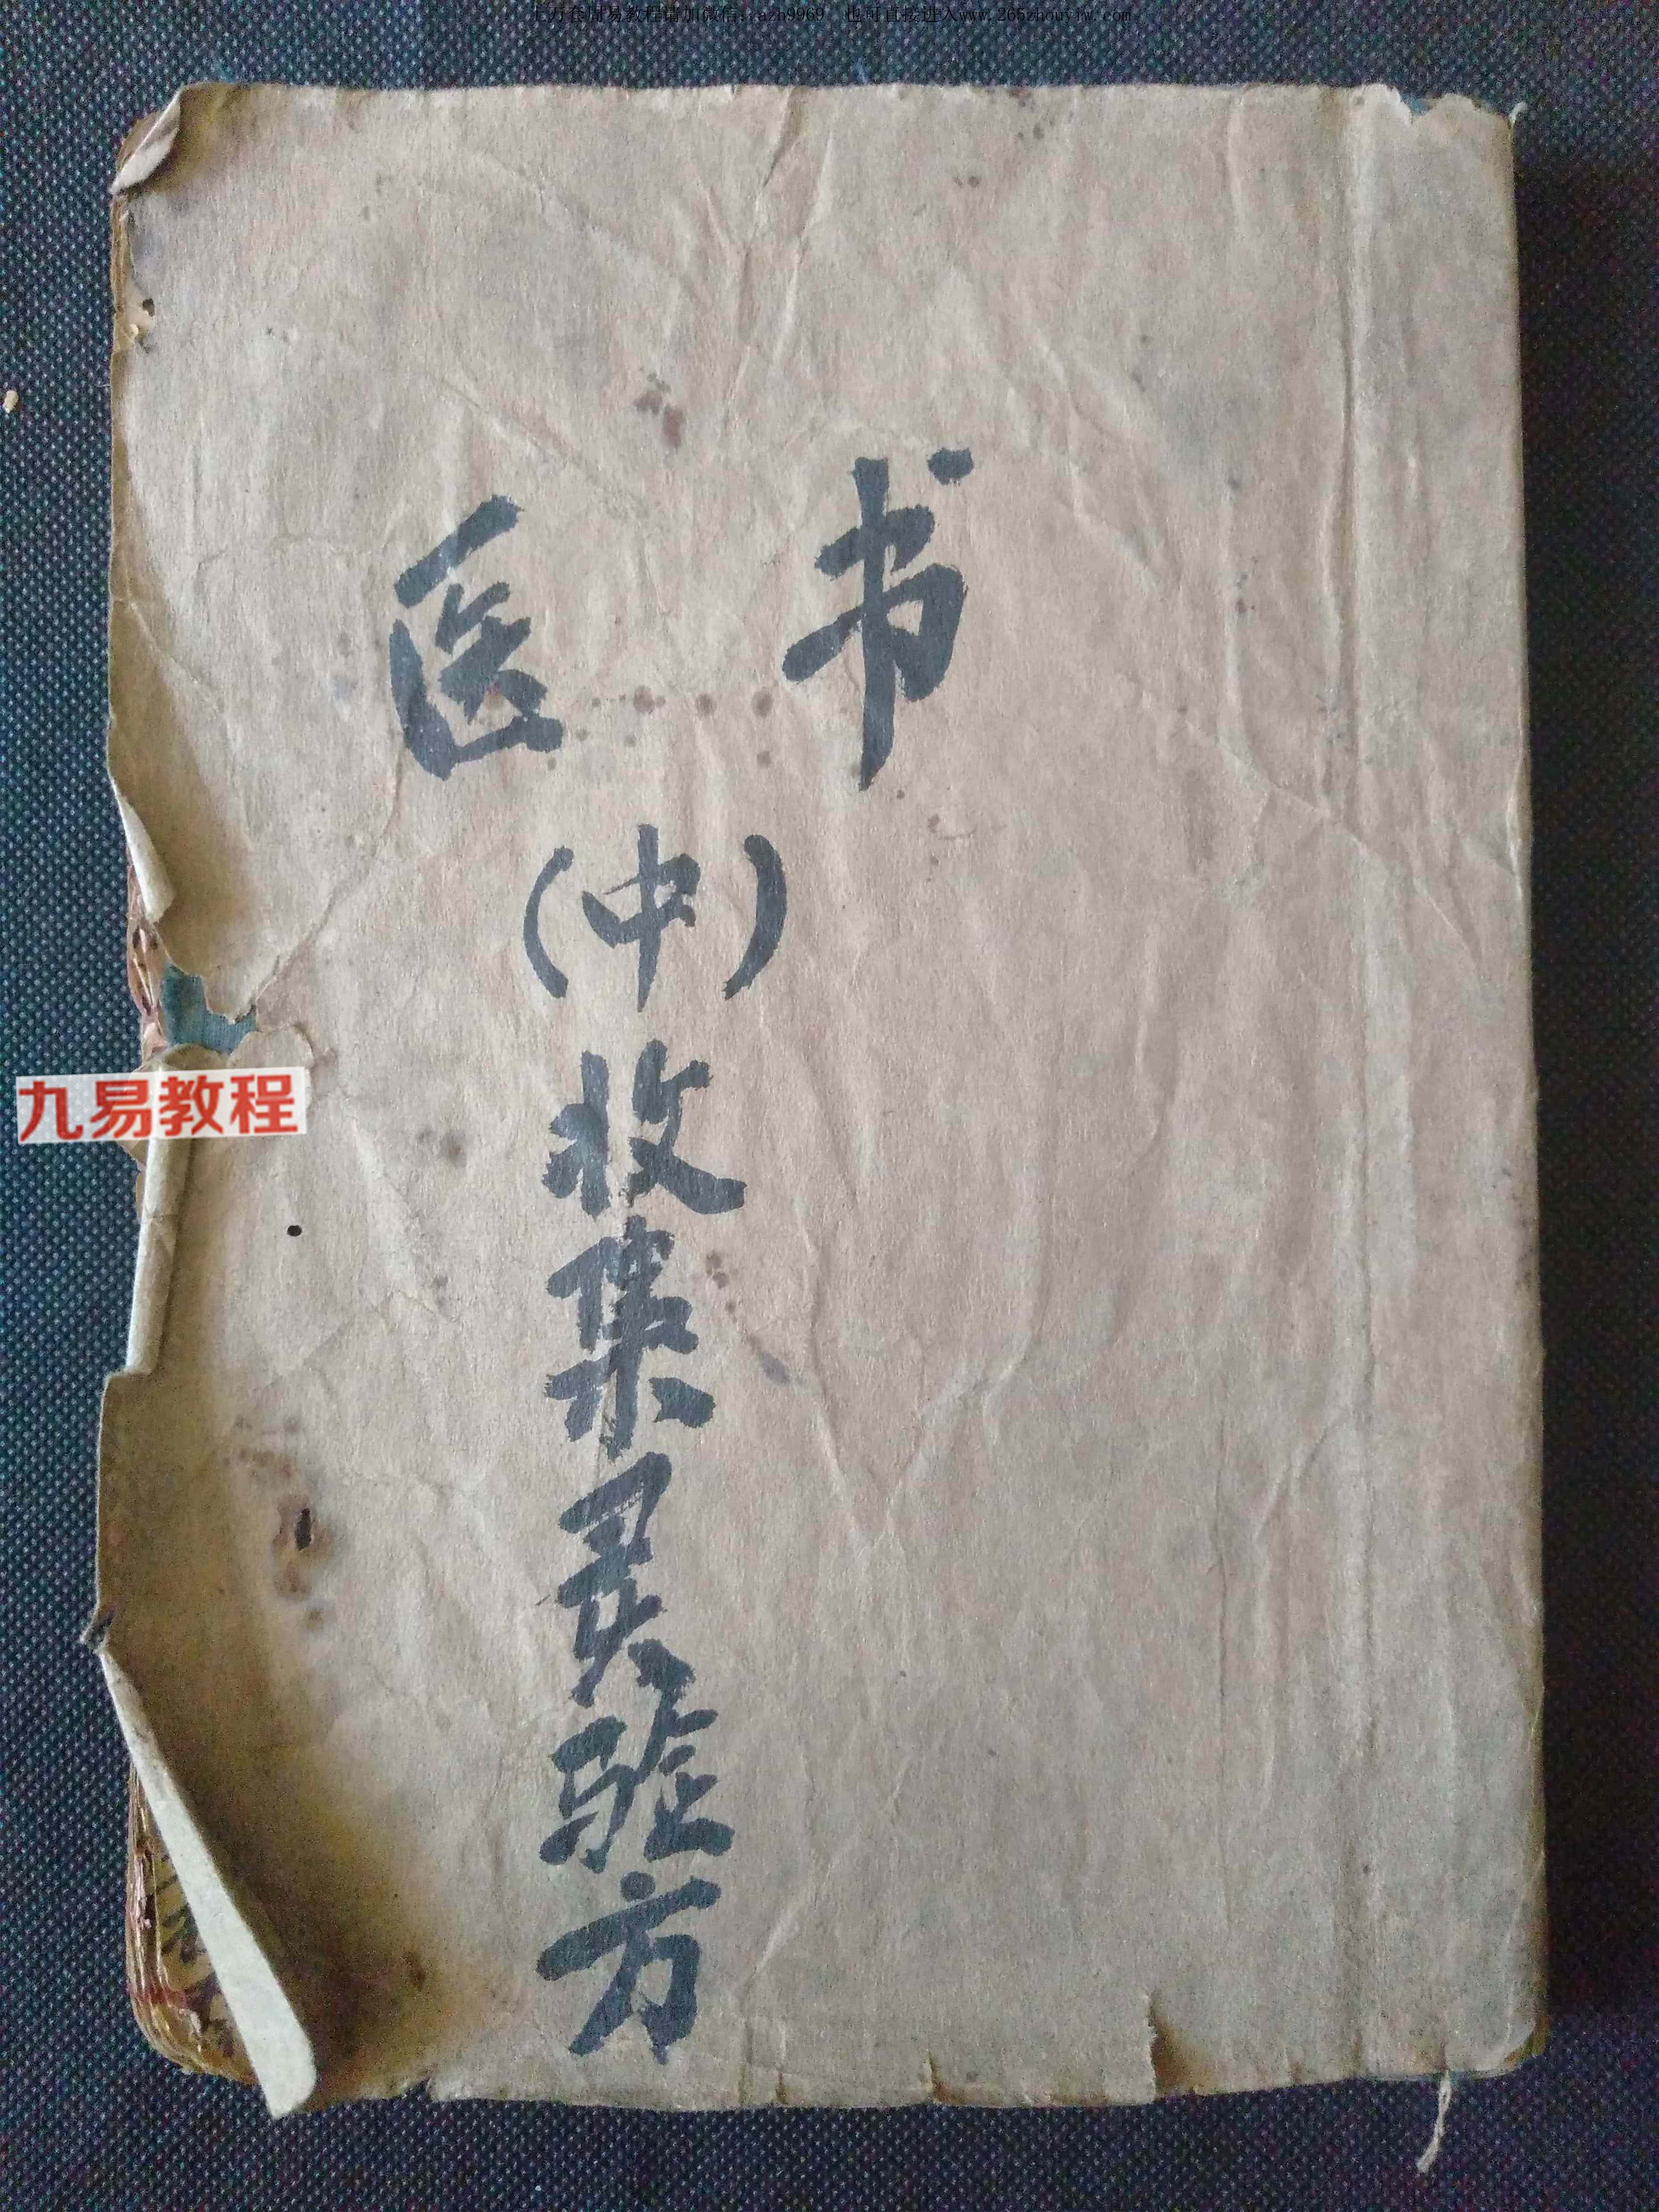 上万套周易教程请加微信:jazh9969 也可直接进入www.265zhouyiw.com
医 书
(中)
收集灵验方
九易教程